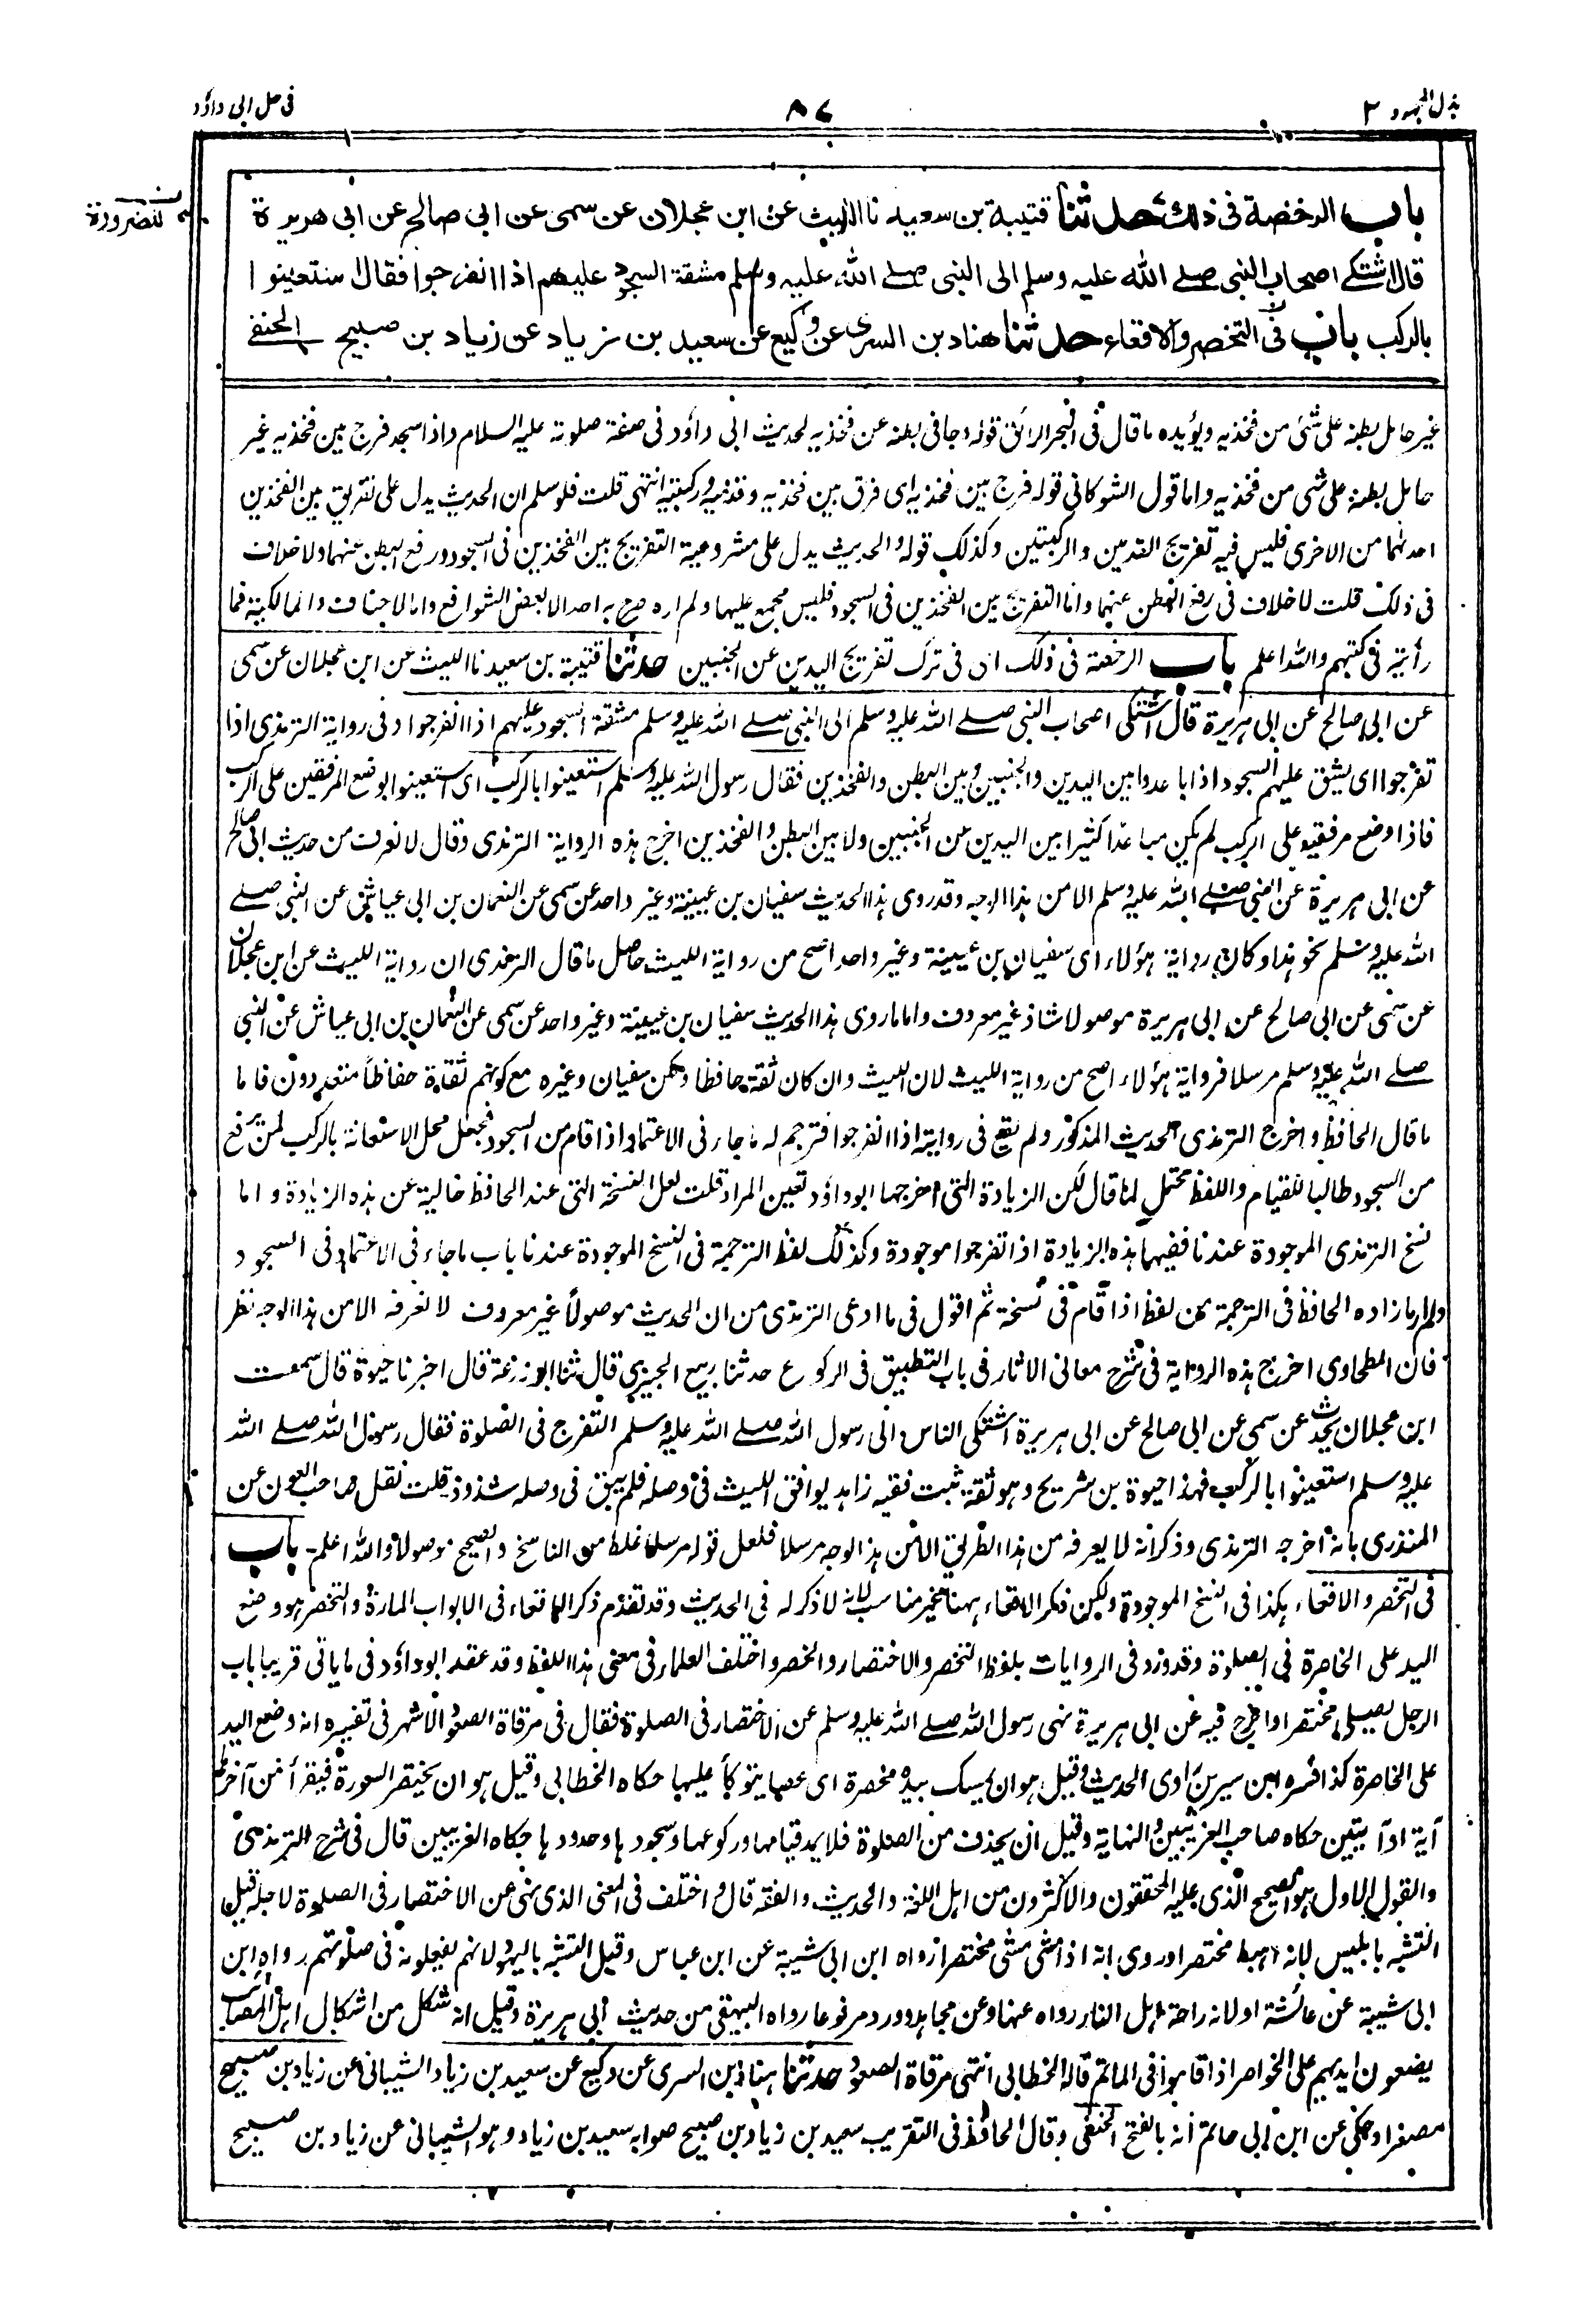 بذل المجهود ٢
٨٧
فى حل ابى داؤد
للضرورة
باب الرخصة فى ذلك حدثنا قتيبة بن سعيد نا الليث عن ابن عجلان عن سمى عن ابى صالح عن ابى هريرة
قال اشتكے اصحاب النبى صلے الله عليه وسلم الى النبى صلے الله عليه وسلم مشقة السجود عليهم اذا انفرجوا فقال استعينوا
بالركب باب فى التخصر والاقعاء حدثنا هناد بن السرى عن وكيع عن سعيد بن زياد عن زياد بن صبيح الحنفے
غير حامل بطنه على شئ من فخذيه ويؤيده ما قال فى البحر الرائق قوله وجافى بطنه عن فخذيه لحديث ابى داؤد فى صفة صلوته عليه السلام واذا سجد فرج بين فخذيه غير
حامل بطنه على شى من فخذيه واما قول الشوكانى قوله فرج بين فخذيه اى فرق بين فخذيه وقدميه وركبتيه انتهى قلت فلو سلم ان الحديث يدل على تفريق بين الفخذين
احدٰهما من الاخرى فليس فيه تفريج القدمين والركبتين وكذلك قوله والحديث يدل على مشروعية التفريج بين الفخذين فى السجود ورفع البطن عنهما ولا خلاف
فى ذلك قلت لا خلاف فى رفع البطن عنهما واما التفريج بين الفخذين فى السجود فليس مجمع عليها ولم اره صرح به احد الا بعض الشوافع واما الاحناف والمالكية فما
رأيته فى كتبهم والله اعلم باب الرخصة فى ذلك اى فى ترك تفريج اليدين عن الجنبين حدثنا قتيبة بن سعيد نا الليث عن ابن عجلان عن سمى
عن ابى صالح عن ابى هريرة قال اشتكى اصحاب النبى صلے الله عليه وسلم الى النبى صلے الله عليه وسلم مشقة السجود عليهم اذا انفرجوا وفى رواية الترمذى اذا
تفرجوا اى يشق عليهم السجود اذا باعدوا بين اليدين والجنبين وبين البطن والفخذين فقال رسول الله عليه وسلم استعينوا بالركب اى استعينوا بوضع المرفقين على الركب
فاذا وضع مرفقيه على الركب لم يكن مباعدا كثيرا بين اليدين عن الجنبين ولا بين البطن والفخذين اخرج هذه الرواية الترمذى وقال لا نعرف من حديث ابى صالح
عن ابى هريرة عن النبى صلے الله عليه وسلم الا من هذا الوجه وقد روى هذا الحديث سفيان بن عيينة وغير واحد عن سمى عن النعمان بن ابى عياش عن النبى صلے
الله عليه وسلم نحو هذا وكان رواية هؤلاء اى سفيان بن عيينة وغير واحد اصح من رواية الليث حاصل ما قال الترمذى ان رواية الليث عن ابن عجلان
عن سمى عن ابى صالح عن ابى هريرة موصولا شاذ غير معروف واما ما روى هذا الحديث سفيان بن عيينة وغير واحد عن سمى عن النعمان بن ابى عياش عن النبى
صلے الله عليه وسلم مرسلا فرواية هؤلاء اصح من رواية الليث لان الليث وان كان ثقة حافظا ولكن سفيان وغيره مع كونهم ثقاة حفاظا متعددون فاما
ما قال الحافظ واخرج الترمذى الحديث المذكور ولم يقع فى رواية اذا انفرجوا فترجم له ما جاء فى الاعتماد اذا قام من السجود فجعل محل الاستعانة بالركب لمن يرفع
من السجود طالبا للقيام واللفظ محتمل لما قال لكن الزيادة التى اخرجها ابو داؤد تعين المراد قلت لعل النسخة التى عند الحافظ خالية عن هذه الزيادة واما
نسخ الترمذى الموجودة عندنا ففيها هذه الزيادة اذا تفرجوا موجودة وكذلك لفظ الترجمة فى النسخ الموجودة عندنا باب ما جاء فى الاعتماد فى السجود
ولم ار ما زاده الحافظ فى الترجمة من لفظ اذا قام فى نسخة ثم اقول فى ما ادعى الترمذى من ان الحديث موصولا غير معروف لا نعرفه الا من هذا الوجه نظر
فان الطحاوى اخرج هذه الرواية فى شرح معانى الاثار فى باب التطبيق فى الركوع حدثنا ربيع الجيزى قال ثنا ابو زرعة قال اخبرنا حيوة قال سمعت
ابن عجلان يحدث عن سمى عن ابى صالح عن ابى هريرة اشتكى الناس الى رسول الله صلے الله عليه وسلم التفرج فى الصلوة فقال رسول الله صلے الله
عليه وسلم استعينوا بالركب فهذا حيوة بن شريح وهو ثقة ثبت فقيه زاهد يوافق الليث فى وصله فلم يبق فى وصله شذوذ قلت نقل صاحب العون عن
المنذرى بانه اخرجه الترمذى وذكر انه لا يعرفه من هذا الطريق الا من هذ الوجه مرسلا فلعل قوله مرسلا غلط من الناسخ والصحيح موصولا والله اعلم- باب
فى التخصر والاقعاء هكذا فى النسخ الموجودة ولكن ذكر الاقعاء ههنا غير مناسب لانه لا ذكر له فى الحديث وقد تقدم ذكر الاقعاء فى الابواب المارة والتخصر هو وضع
اليد على الخاصرة فى الصلوة وقد ورد فى الروايات بلفظ التخصر والاختصار والخصر واختلف العلماء فى معنى هذا اللفظ وقد عقد ابو داؤد فى ما ياتى قريبا باب
الرجل يصلى مختصرا واخرج فيه عن ابى هريرة نهى رسول الله صلے الله عليه وسلم عن الاختصار فى الصلوة فقال فى مرقاة الصعود الاشهر فى تفسيره انه وضع اليد
على الخاصرة كذا فسره ابن سيرين راوى الحديث وقيل هو ان يمسك بيده مخصرة اى عصا يتوكأ عليها حكاه الخطابى وقيل هو ان يختصر السورة فيقرأ من آخرها
آية او آيتين حكاه صاحب الغريبين والنهاية وقيل ان يحذف من الصلوة فلا يمد قيامها وركوعها وسجودها وحدودها حكاه الغريبين قال فى شرح الترمذى
والقول الاول هو الصحيح الذى عليه المحققون والاكثرون من اهل اللغة والحديث والفقه قال واختلف فى المعنى الذى نهى عن الاختصار فى الصلوة لاجله قيل
التشبه بابليس لانه اهبط مختصرا وروى انه اذا مشى مشى مختصرا رواه ابن ابى شيبة عن ابن عباس وقيل التشبه باليهود لانهم يفعلونه فى صلوتهم رواه ابن
ابى شيبة عن عائشة او لانه راحة اهل النار رواه عنها وعن مجاهد وورد مرفوعا رواه البيهقى من حديث ابى هريرة وقيل انه شكل من اشكال اهل المصائب
يضعون ايديهم على الخواصر اذا قاموا فى الماتم قاله الخطابى انتهى مرقاة الصعود حدثنا هناد بن السرى عن وكيع عن سعيد بن زياد الشيبانى عن زياد بن صبيح
مصغرا وحكى عن ابن ابى حاتم انه بالفتح الحنفى وقال الحافظ فى التقريب سعيد بن زياد بن صبيح صوابه سعيد بن زياد وهو الشيبانى عن زياد بن صبيح